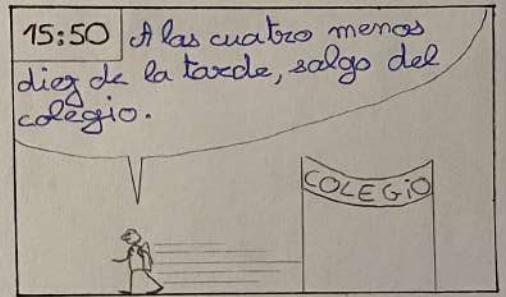 15:50 A las cuatro menos
diez de la tarde, salgo del
colegio.
COLEGIO